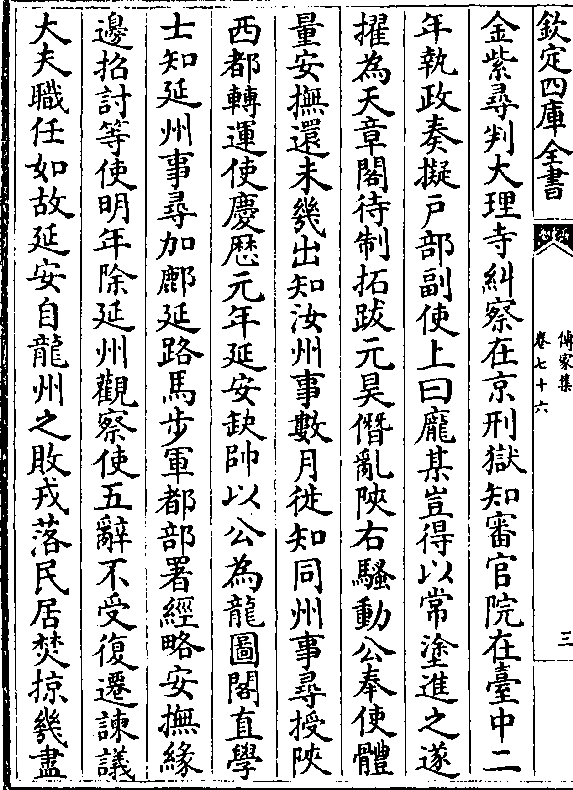 欽定四庫全書
傳家集
卷七十六
三
金紫尋判大理寺糾察在京刑獄知審官院在臺中二
年執政奏擬戶部副使上曰龐某豈得以常塗進之遂
擢為天章閣待制拓跋元昊僭亂陜右騷動公奉使體
量安撫還未幾出知汝州事數月徙知同州事尋授陜
西都轉運使慶厯元年延安缺帥以公為龍圖閣直學
士知延州事尋加鄜延路馬步軍都部署經略安撫緣
邊招討等使明年除延州觀察使五辭不受復遷諫議
大夫職任如故延安自龍州之敗戎落民居焚掠幾盡